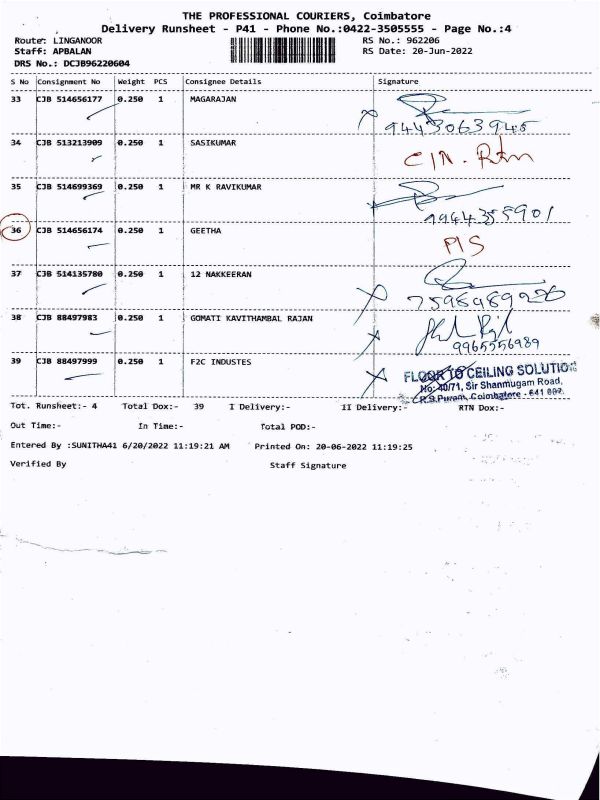 THE PROFESSIONAL COURIERS, Coimbatore
Delivery Runsheet - P41 - Phone No.:0422-3505555 - Page No.:4
Route: LINGANOOR RS No.: 962206
Staff: APBALAN RS Date: 20-Jun-2022
DRS No.: DCJB96220604
S No Consignment No Weight PCS Consignee Details Signature
33 CJB 514656177 0.250 1 MAGARAJAN
9443063945
34 CJB 513213909 0.250 1 SASIKUMAR
C/N. Rtn
35 CJB 514699369 0.250 1 MR K RAVIKUMAR
36 CJB 514656174 0.250 1 GEETHA
P/S
37 CJB 514135780 0.250 1 12 NAKKEERAN
38 CJB 88497983 0.250 1 GOMATI KAVITHAMBAL RAJAN
9965556989
39 CJB 88497999 0.250 1 F2C INDUSTES
FLOOR TO CEILING SOLUTION
No: 40/71, Sir Shanmugam Road,
R.S.Puram, Coimbatore - 641 002.
Tot. Runsheet:- 4 Total Dox:- 39 I Delivery:- II Delivery:- RTN Dox:-
Out Time:- In Time:- Total POD:-
Entered By :SUNITHA41 6/20/2022 11:19:21 AM Printed On: 20-06-2022 11:19:25
Verified By Staff Signature